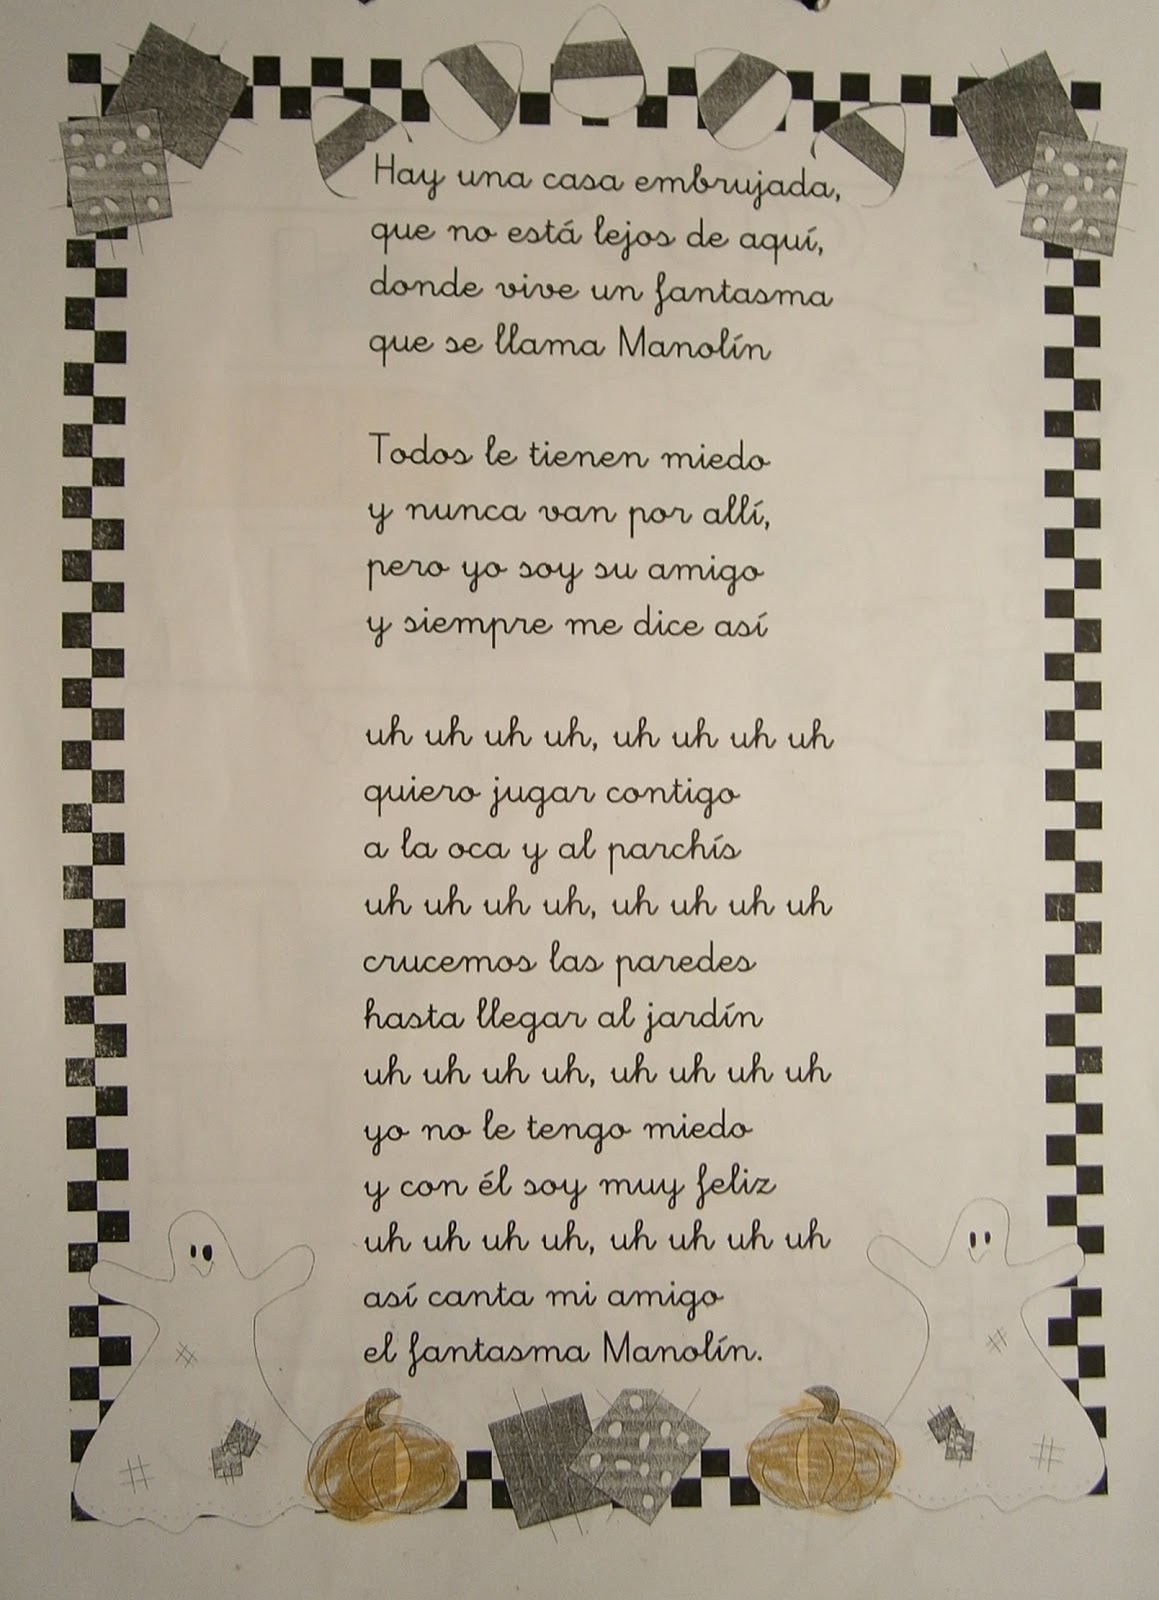 Hay una casa embrujada,
que no está lejos de aquí,
donde vive un fantasma
que se llama Manolín
Todos le tienen miedo
y nunca van por allí,
pero yo soy su amigo
y siempre me dice así
uh uh uh uh, uh uh uh uh
quiero jugar contigo
a la oca y al parchís
uh uh uh uh, uh uh uh uh
crucemos las paredes
hasta llegar al jardín
uh uh uh uh, uh uh uh uh
yo no le tengo miedo
y con él soy muy feliz
uh uh uh uh, uh uh uh uh
así canta mi amigo
el fantasma Manolín.